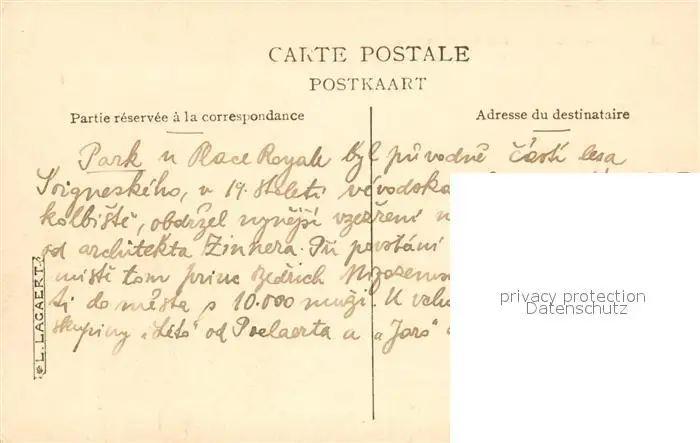 CARTE POSTALE
POSTKAART
Partie réservée à la correspondance
Adresse du destinataire
Park u Place Royale byl původně částí lesa
Soigneského, v 19. století vévodska
kolbiště, obdržel nynější vzezření
od architekta Zinnera. Při povstání
místě tom princ Bedřich Nizozems
ti do města s 10.000 muži. U
skupiny „Léto" od Poelaerta a „Jaro"
L. LAGAERT
privacy protection
Datenschutz